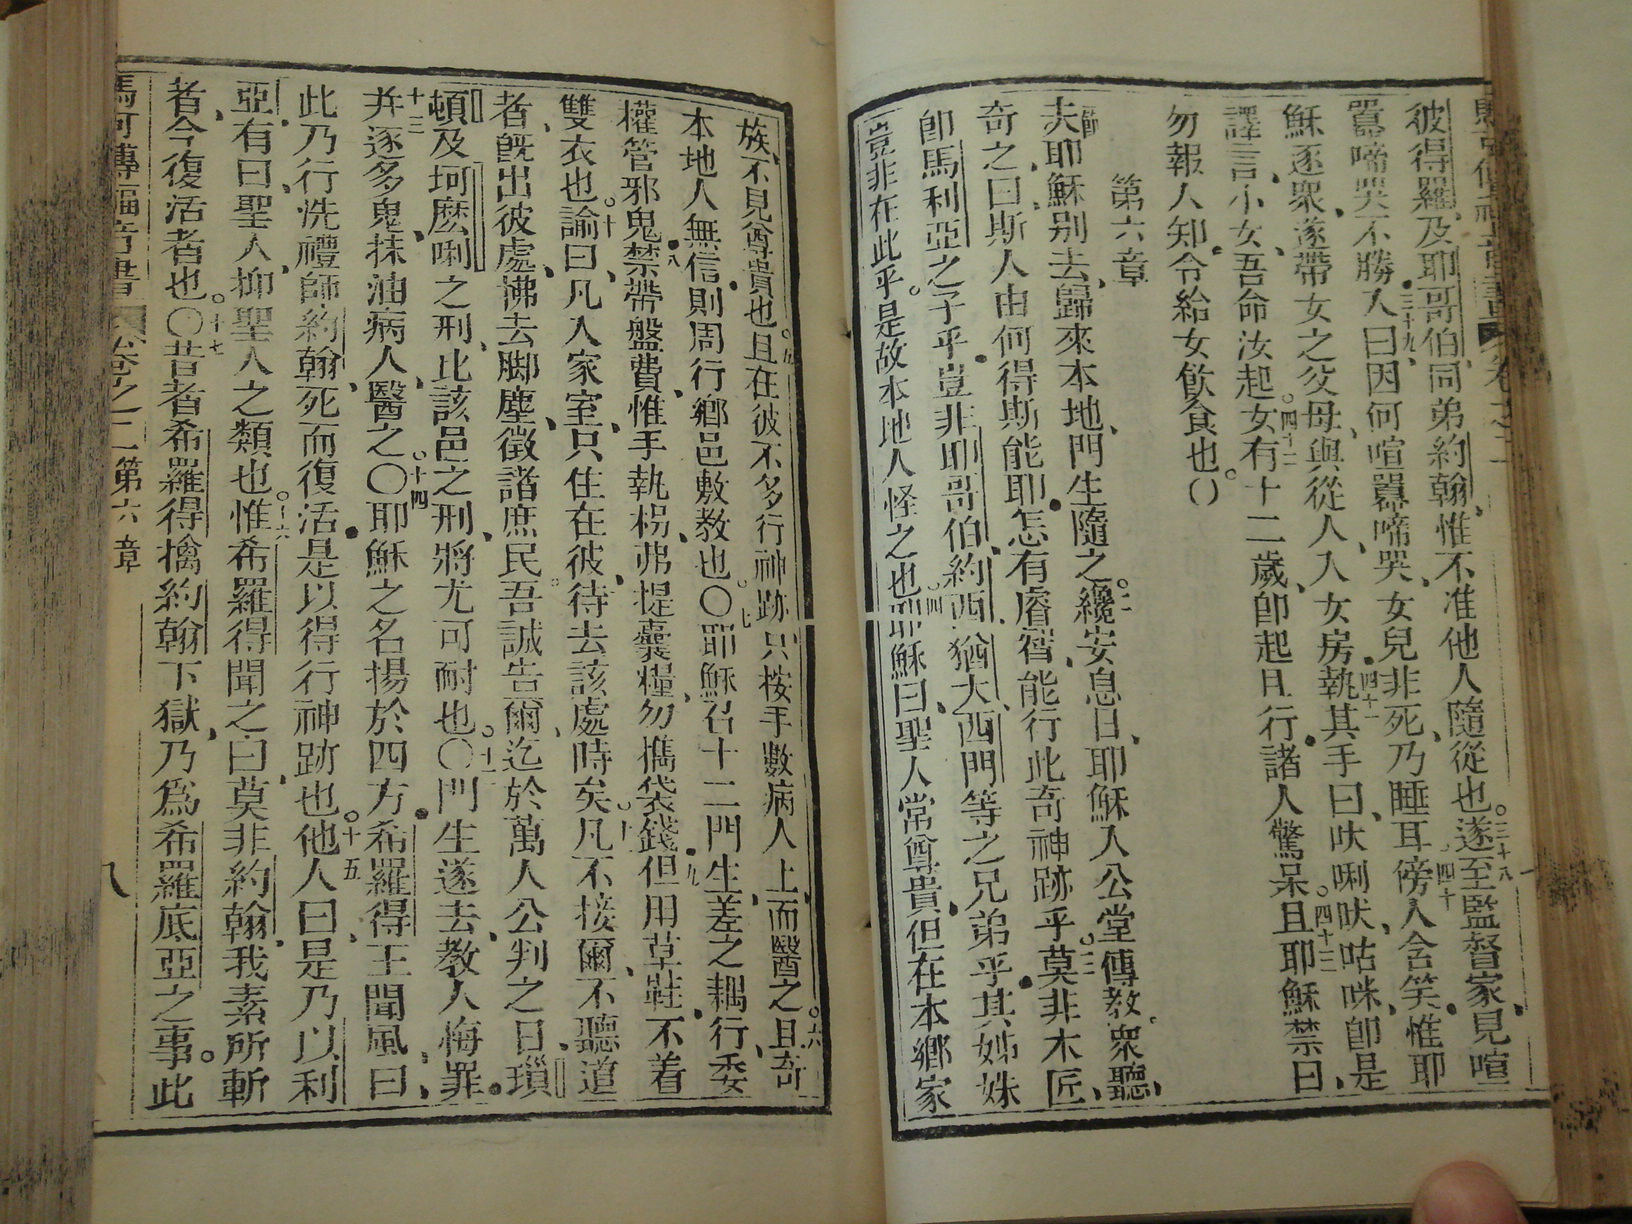 彼得羅及耶哥伯同弟約翰惟不准他人隨從也三十八遂至監督家見喧
囂啼哭不勝三十九入曰因何喧囂啼哭女兒非死乃睡耳四十傍人含笑惟耶
穌逐眾遂帶女之父母與從人入女房四十一執其手曰吠唎吠咕咪卽是
譯言小女吾命汝起四十二女有十二歲卽起且行諸人驚呆且四十三耶穌禁曰
勿報人知令給女飲食也〇
第六章
夫耶穌別去歸來本地門生隨之二纔安息日耶穌入公堂傳教眾聽
奇之曰斯人由何得斯能耶怎有睿智能行此奇神跡乎三莫非木匠
卽馬利亞之子乎豈非耶哥伯約西猶大西門等之兄弟乎其姊妹
豈非在此乎是故本地人怪之也四耶穌曰聖人常尊貴但在本鄉家
族不見尊貴也五且在彼不多行神跡只按手數病人上而醫之六且奇
本地人無信則周行鄉邑敷教也〇七耶穌召十二門生差之耦行委
權管邪鬼八禁帶盤費惟手執柺弗提囊糧勿擕袋錢九但用草鞋不着
雙衣也十諭曰凡入家室只住在彼待去該處時矣十一凡不接爾不聽道
者旣出彼處怫去脚塵徵諸庶民吾誠告爾迄於萬人公判之日瑣
頓及坷麽喇之刑比該邑之刑將尤可耐也〇十二門生遂去教人悔罪
十三幷逐多鬼抹油病人醫之〇十四耶穌之名揚於四方希羅得王聞風曰
此乃行洗禮師約翰死而復活是以得行神跡也十五他人曰是乃以利
亞有曰聖人抑聖人之類也十六惟希羅得聞之曰莫非約翰我素所斬
者今復活者也〇十七昔者希羅得擒約翰下獄乃爲希羅底亞之事此
馬可傳福音書 卷之二 第六章 八